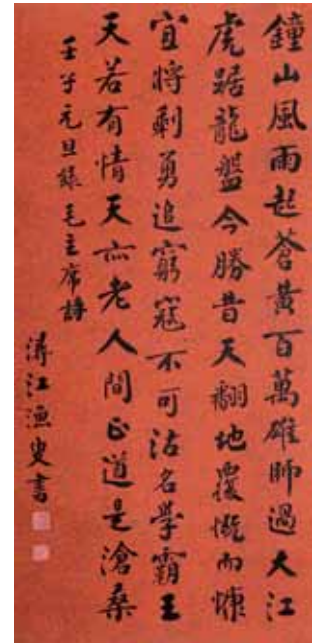 鐘山風雨起蒼黃百萬雄師過大江
虎踞龍盤今勝昔天翻地覆慨而慷
宜將剩勇追窮寇不可沽名學霸王
天若有情天亦老人間正道是滄桑
壬子元旦錄毛主席詩
潯江漁叟書